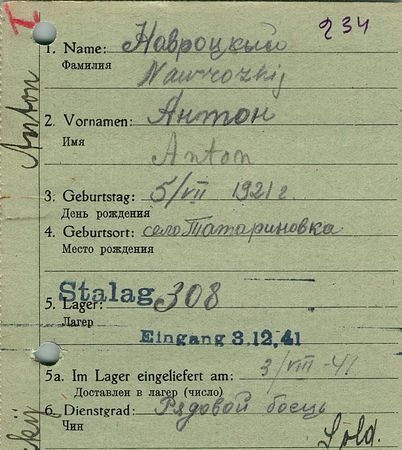 I
234
1. Name: Навроцкий
Фамилия
Nawrozkij
2. Vornamen: Антон
Имя
Anton
Anton
3. Geburtstag: 5/VII 1921 г.
День рождения
4. Geburtsort: село Татариновка
Место рождения
Stalag 308
5. Lager:
Лагер
Eingang 3.12.41
5a. Im Lager eingeliefert am: 3/VIII-41
Доставлен в лагер (число)
6. Dienstgrad: Рядовой боець
Чин
Sold.